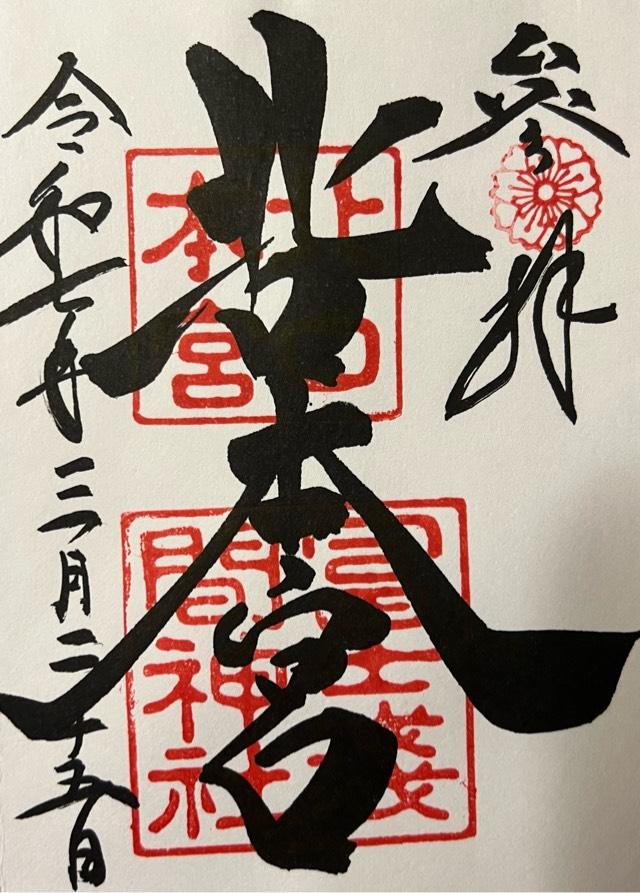 參拝
北口本宮
北口本宮
冨士淺間神社
令和七年三月二十五日